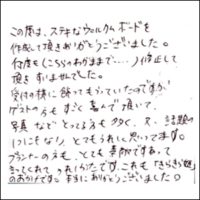 この度は、ステキなウェルカムボードを
作成して頂きありがとうございました。
何度も(こちらのわがままで....)修正して
頂きすいませんでした。
受付の横に飾ってもらっていたのですが
ゲストの方もすごく喜んで頂いて、
写真などとってる方も多く、又、話題の
1つにもなり、とてもうれしく思っています。
プランナーの方も、とても素敵ですねって
言ってくれて、それがったです。これも「きらきら
のおかげです。本当にありがとうございました。